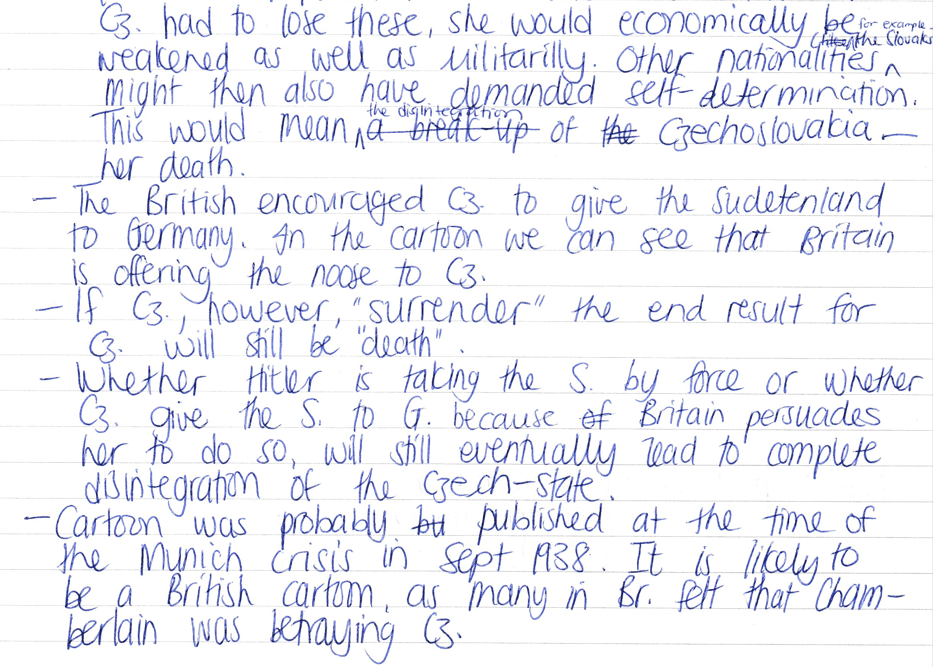 Cz. had to lose these, she would economically be
weakened as well as militarilly. Other nationalities, for example the Slovaks
might then also have demanded self-determination.
This would mean the disintegration a break-up of the Czechoslovakia –
her death.
– The British encouraged Cz. to give the Sudetenland
to Germany. In the cartoon we can see that Britain
is offering the noose to Cz.
– If Cz., however, "surrender" the end result for
Cz. will still be "death".
– Whether Hitler is taking the S. by force or whether
Cz. give the S. to G. because of Britain persuades
her to do so, will still eventually lead to complete
disintegration of the Czech-state.
– Cartoon was probably published at the time of
the Munich crisis in Sept 1938. It is likely to
be a British cartoon, as many in Br. felt that Cham-
berlain was betraying Cz.